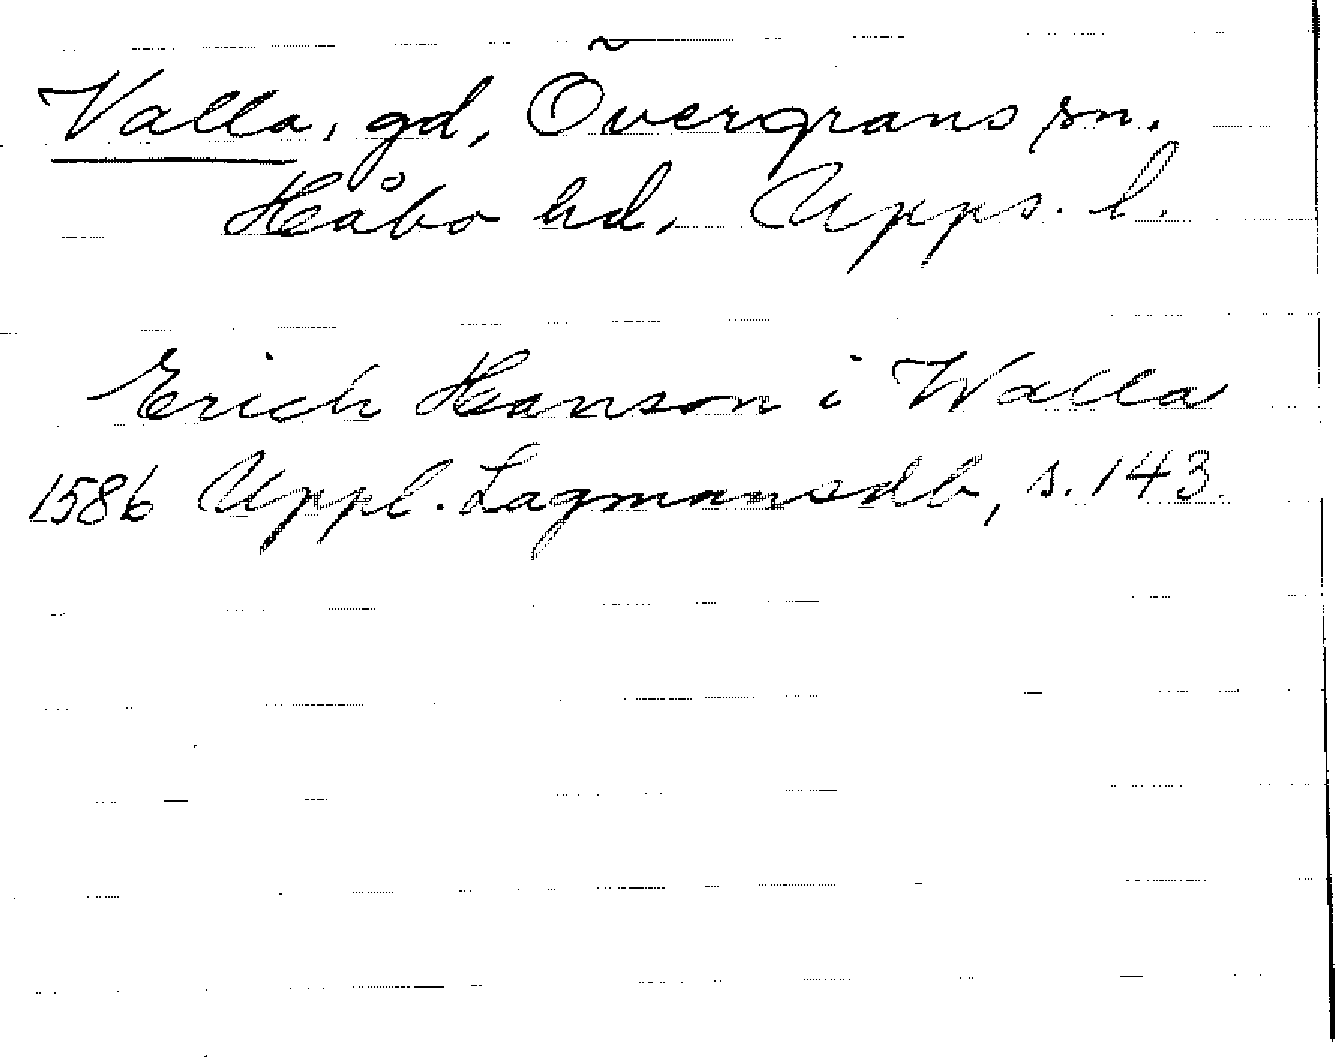 Valla, gd, Övergrans sn.
Håbo hd, Upps. l.
Erich Hanson i Walla
1586 Uppl. Lagmansdb, s. 143.